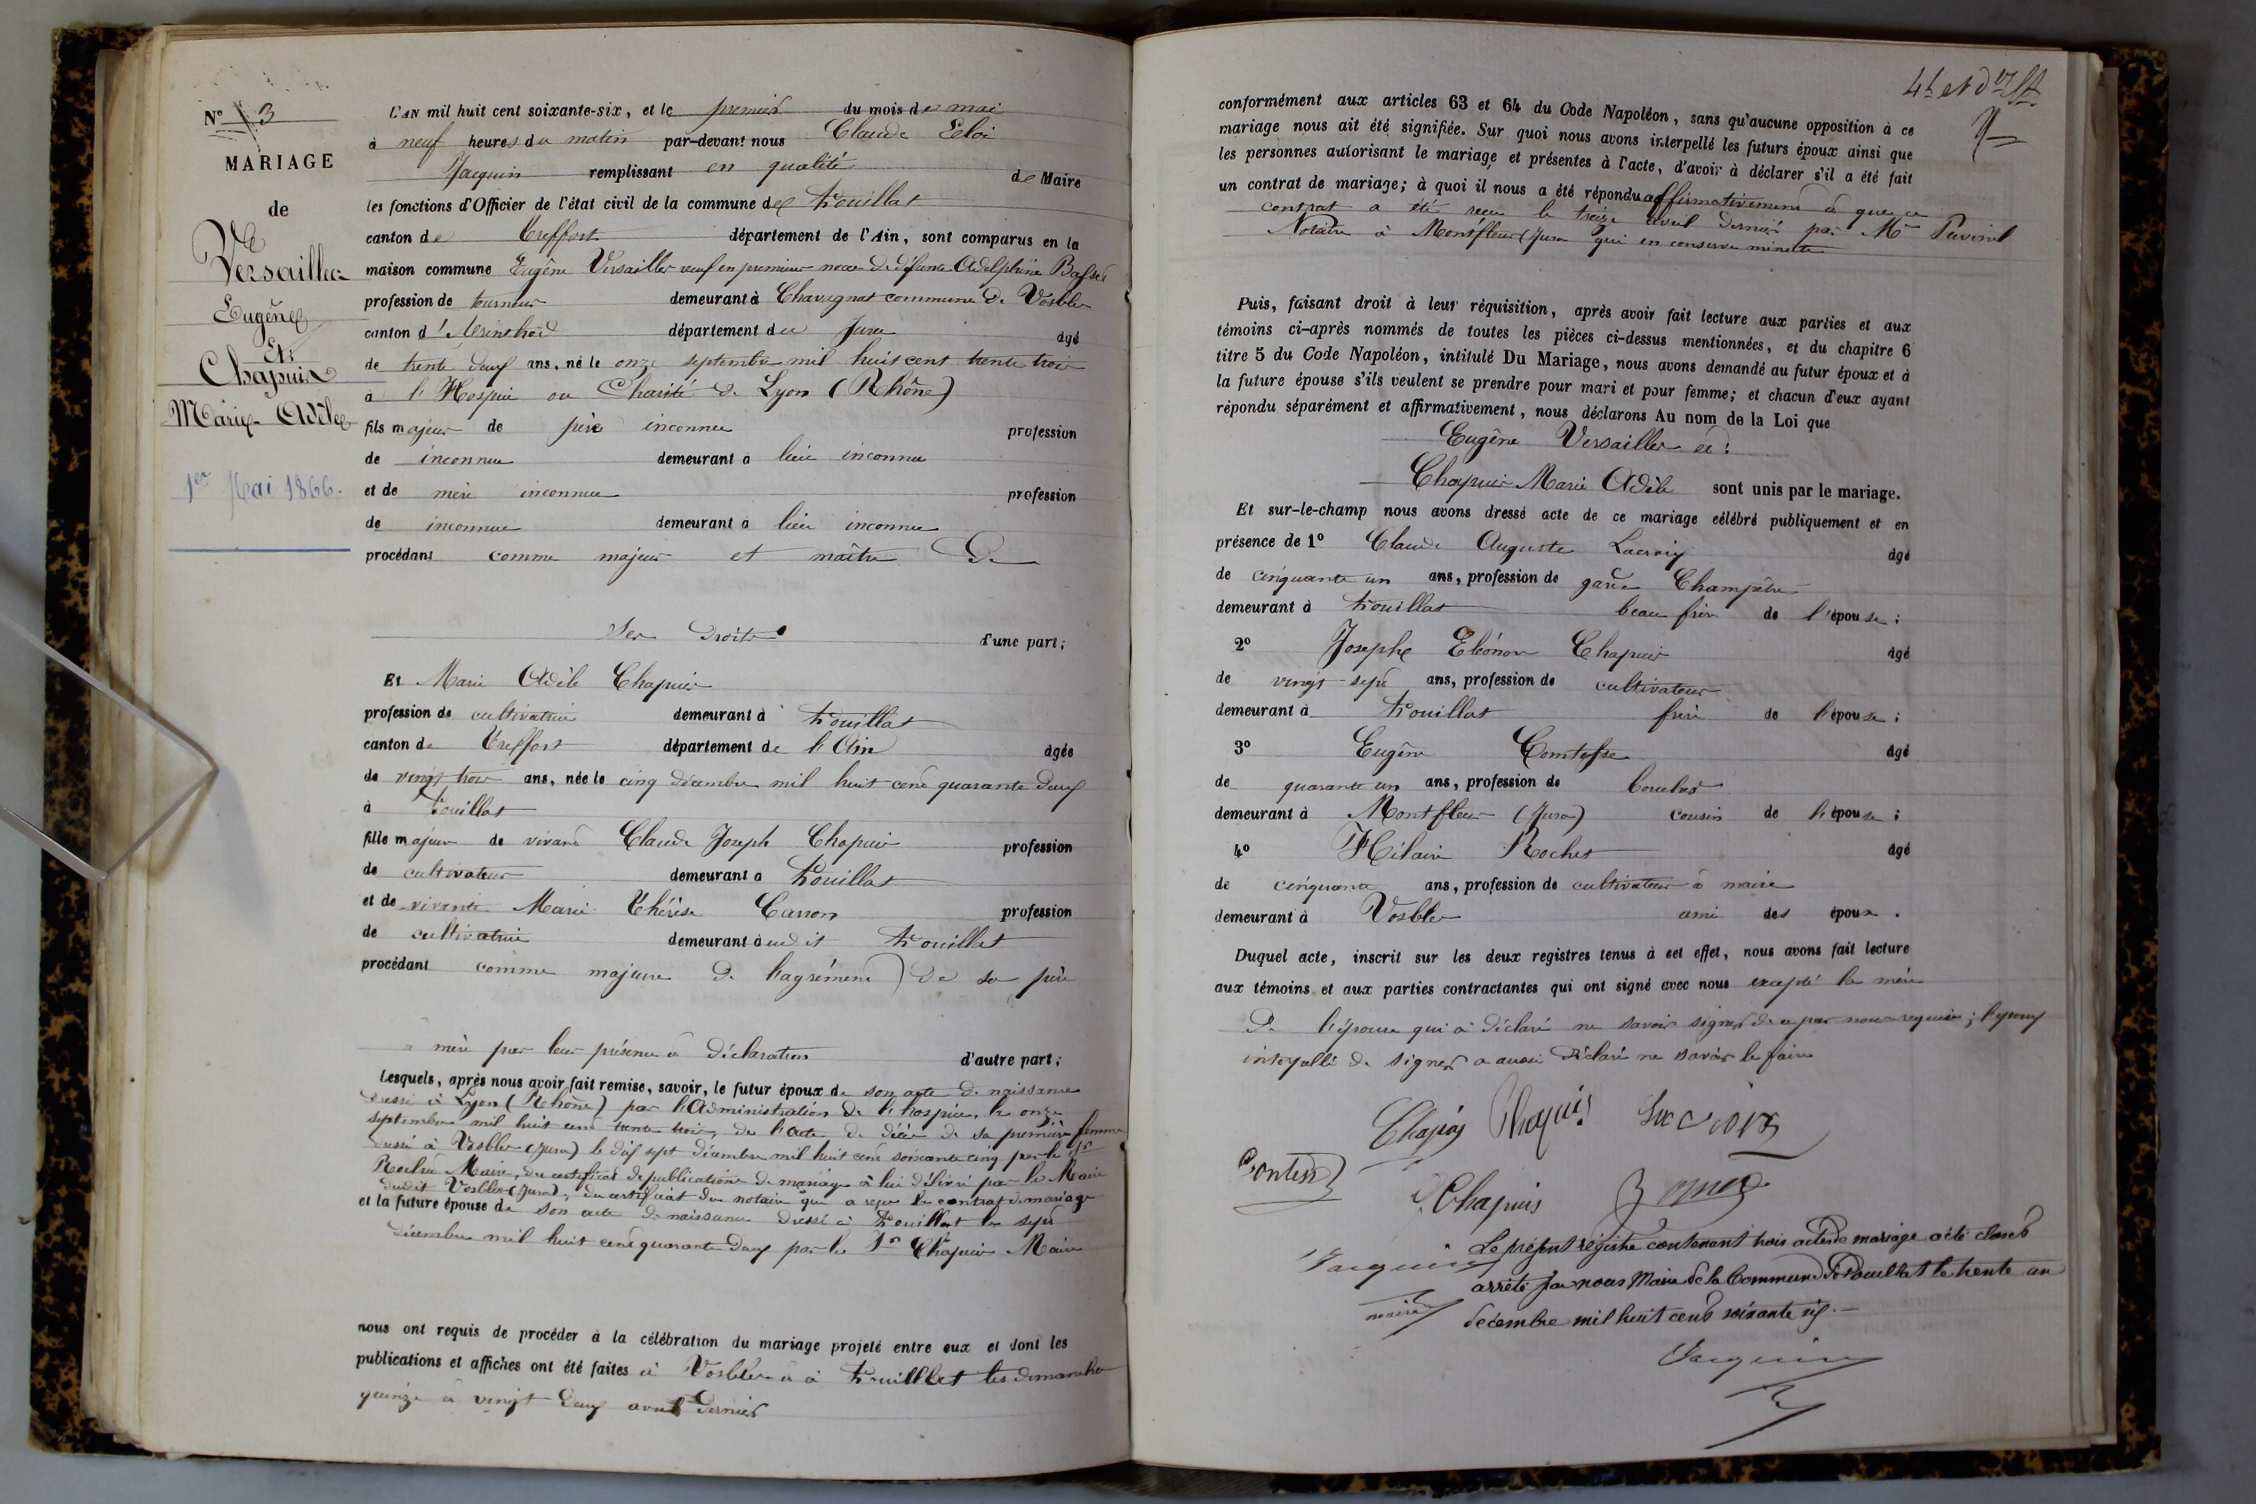 N° 3
MARIAGE
de
Versailler
Eugène
Et
Chapuis
Marie Adèle
1er Mai 1866.
L'AN mil huit cent soixante-six, et le premier du mois de mai
à neuf heures du matin par-devant nous Claude Eloi
Jacquin remplissant en qualité de Maire
les fonctions d'Officier de l'état civil de la commune de Pouillat
canton de Treffort département de l'Ain, sont comparus en la
maison commune Eugène Versailler veuf en premières noces de défunte Adelphine
profession de tourneur demeurant à Chavagnat commune de Vosbles
canton d'Arinthod département du Jura âgé
de trente deux ans, né le onze septembre mil huit cent trente trois
à l'Hospice ou Charité de Lyon (Rhône)
fils majeur de père inconnu profession
de inconnue demeurant à lieu inconnu
et de mère inconnue profession
de inconnue demeurant à lieu inconnu
procédant comme majeur et maître de
ses droits d'une part;
Et Marie Adèle Chapuis
profession de cultivatrice demeurant à Pouillat
canton de Treffort département de l'Ain âgée
de vingt trois ans, née le cinq décembre mil huit cent quarante deux
à Pouillat
fille majeure de vivant Claude Joseph Chapuis profession
de cultivateur demeurant à Pouillat
et de vivante Marie Thérèse Carron profession
de cultivatrice demeurant audit Pouillat
procédant comme majeure de l'agrément de ses père
mère par leur présence à déclaration d'autre part;
Lesquels, après nous avoir fait remise, savoir, le futur époux de son acte de naissance
dressé à Lyon (Rhône) par l'Administration de l'hospice, le onze
septembre mil huit cent trente trois, de l'acte de décès de sa première femme
dressé à Vosbles (Jura) le dix sept décembre mil huit cent soixante cinq par le Sr
Rochet Maire, du certificat de publications de mariage à lui délivré par le Maire
dudit Vosbles (Jura), du certificat du notaire qui a reçu le contrat de mariage
et la future épouse de son acte de naissance dressé à Pouillat le sept
décembre mil huit cent quarante deux par le Sr Chapuis Maire
nous ont requis de procéder à la célébration du mariage projeté entre eux et dont les
publications et affiches ont été faites à Vosbles et à Pouillat les dimanches
quinze et vingt deux avril dernier
conformément aux articles 63 et 64 du Code Napoléon, sans qu'aucune opposition à ce
mariage nous ait été signifiée. Sur quoi nous avons interpellé les futurs époux ainsi que
les personnes autorisant le mariage, et présentes à l'acte, d'avoir à déclarer s'il a été fait
un contrat de mariage; à quoi il nous a été répondu affirmativement et que ce
contrat a été reçu le treize avril dernier par Me
Notaire à Montfleur (Jura qui en conserve minute
Puis, faisant droit à leur réquisition, après avoir fait lecture aux parties et aux
témoins ci-après nommés de toutes les pièces ci-dessus mentionnées, et du chapitre 6
titre 5 du Code Napoléon, intitulé Du Mariage, nous avons demandé au futur époux et à
la future épouse s'ils veulent se prendre pour mari et pour femme; et chacun d'eux ayant
répondu séparément et affirmativement, nous déclarons Au nom de la Loi que
Eugène Versailler et:
Chapuis Marie Adèle sont unis par le mariage.
Et sur-le-champ nous avons dressé acte de ce mariage célébré publiquement et en
présence de 1° Claude Auguste Lacroix âgé
de cinquante un ans, profession de garde Champêtre
demeurant à Pouillat beau frère de l'épouse;
2° Josephe Eléonor Chapuis âgé
de vingt-sept ans, profession de cultivateur
demeurant à Pouillat frère de l'épouse;
3° Eugène Comtesse âgé
de quarante un ans, profession de
demeurant à Montfleur (Jura) cousin de l'épouse;
4° Hilaire Rochet âgé
de cinquante ans, profession de cultivateur et maire
demeurant à Vosbles ami des époux.
Duquel acte, inscrit sur les deux registres tenus à cet effet, nous avons fait lecture
aux témoins et aux parties contractantes qui ont signé avec nous excepté la mère
de l'épouse qui a déclaré ne savoir signer de ce par nous requise; l'époux
interpellé de signer a aussi déclaré ne savoir le faire
Chapuis Lacroix
Chapuis
Jacquin
maire
Le présent registre contenant trois actes de mariage a été clos et
arrêté par nous Maire de la Commune de Pouillat le trente un
décembre mil huit cent soixante six.
Jacquin